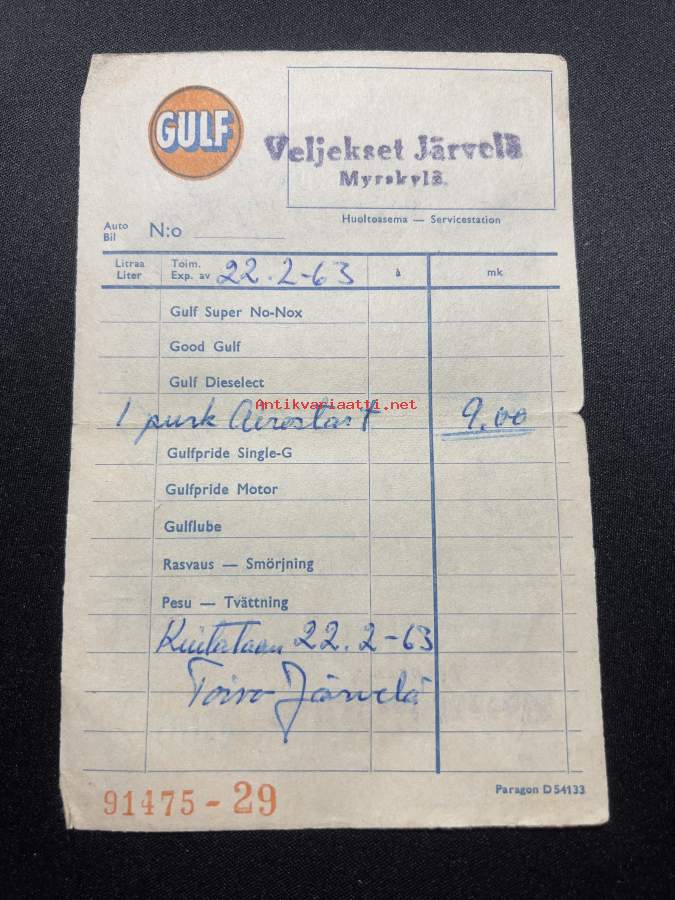 GULF
Veljekset Järvelä
Myrskylä.
Huoltoasema — Servicestation
Auto
Bil
N:o
Litraa
Liter
Toim.
Exp. av
22.2-63
à
mk
Gulf Super No-Nox
Good Gulf
Gulf Dieselect
Antikvariaatti.net
1 purk Aerostart 9.00
Gulfpride Single-G
Gulfpride Motor
Gulflube
Rasvaus — Smörjning
Pesu — Tvättning
Kuitataan 22.2-63
Toivo Järvelä
91475-29
Paragon D 54133